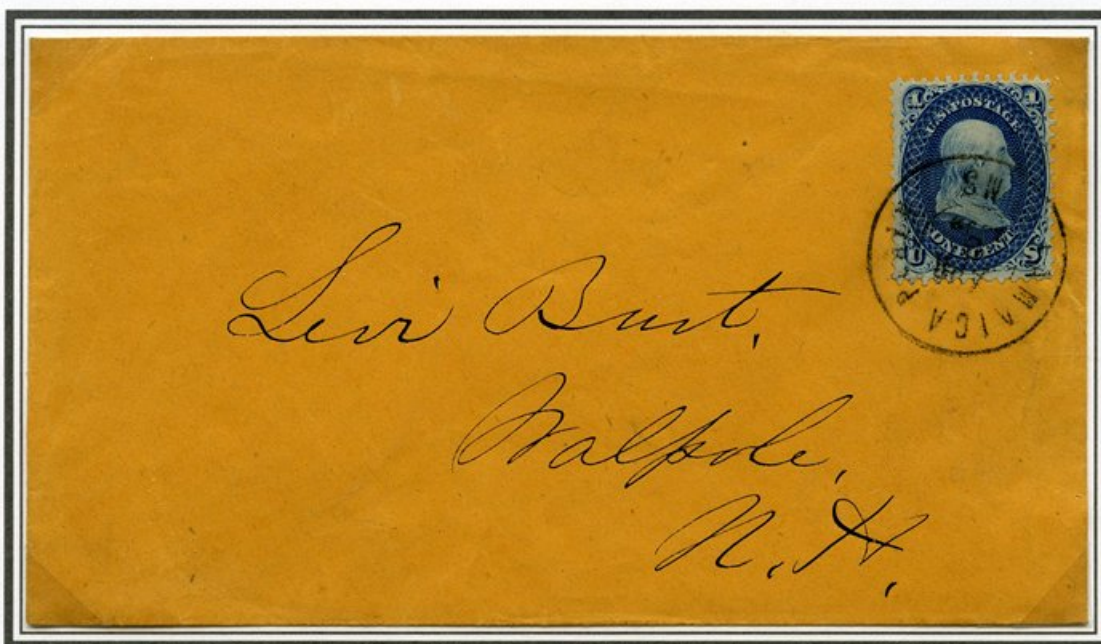 U.S. POSTAGE
ONE CENT
JAMAICA PLAIN
MS
Levi Burt,
Walpole,
N. H.